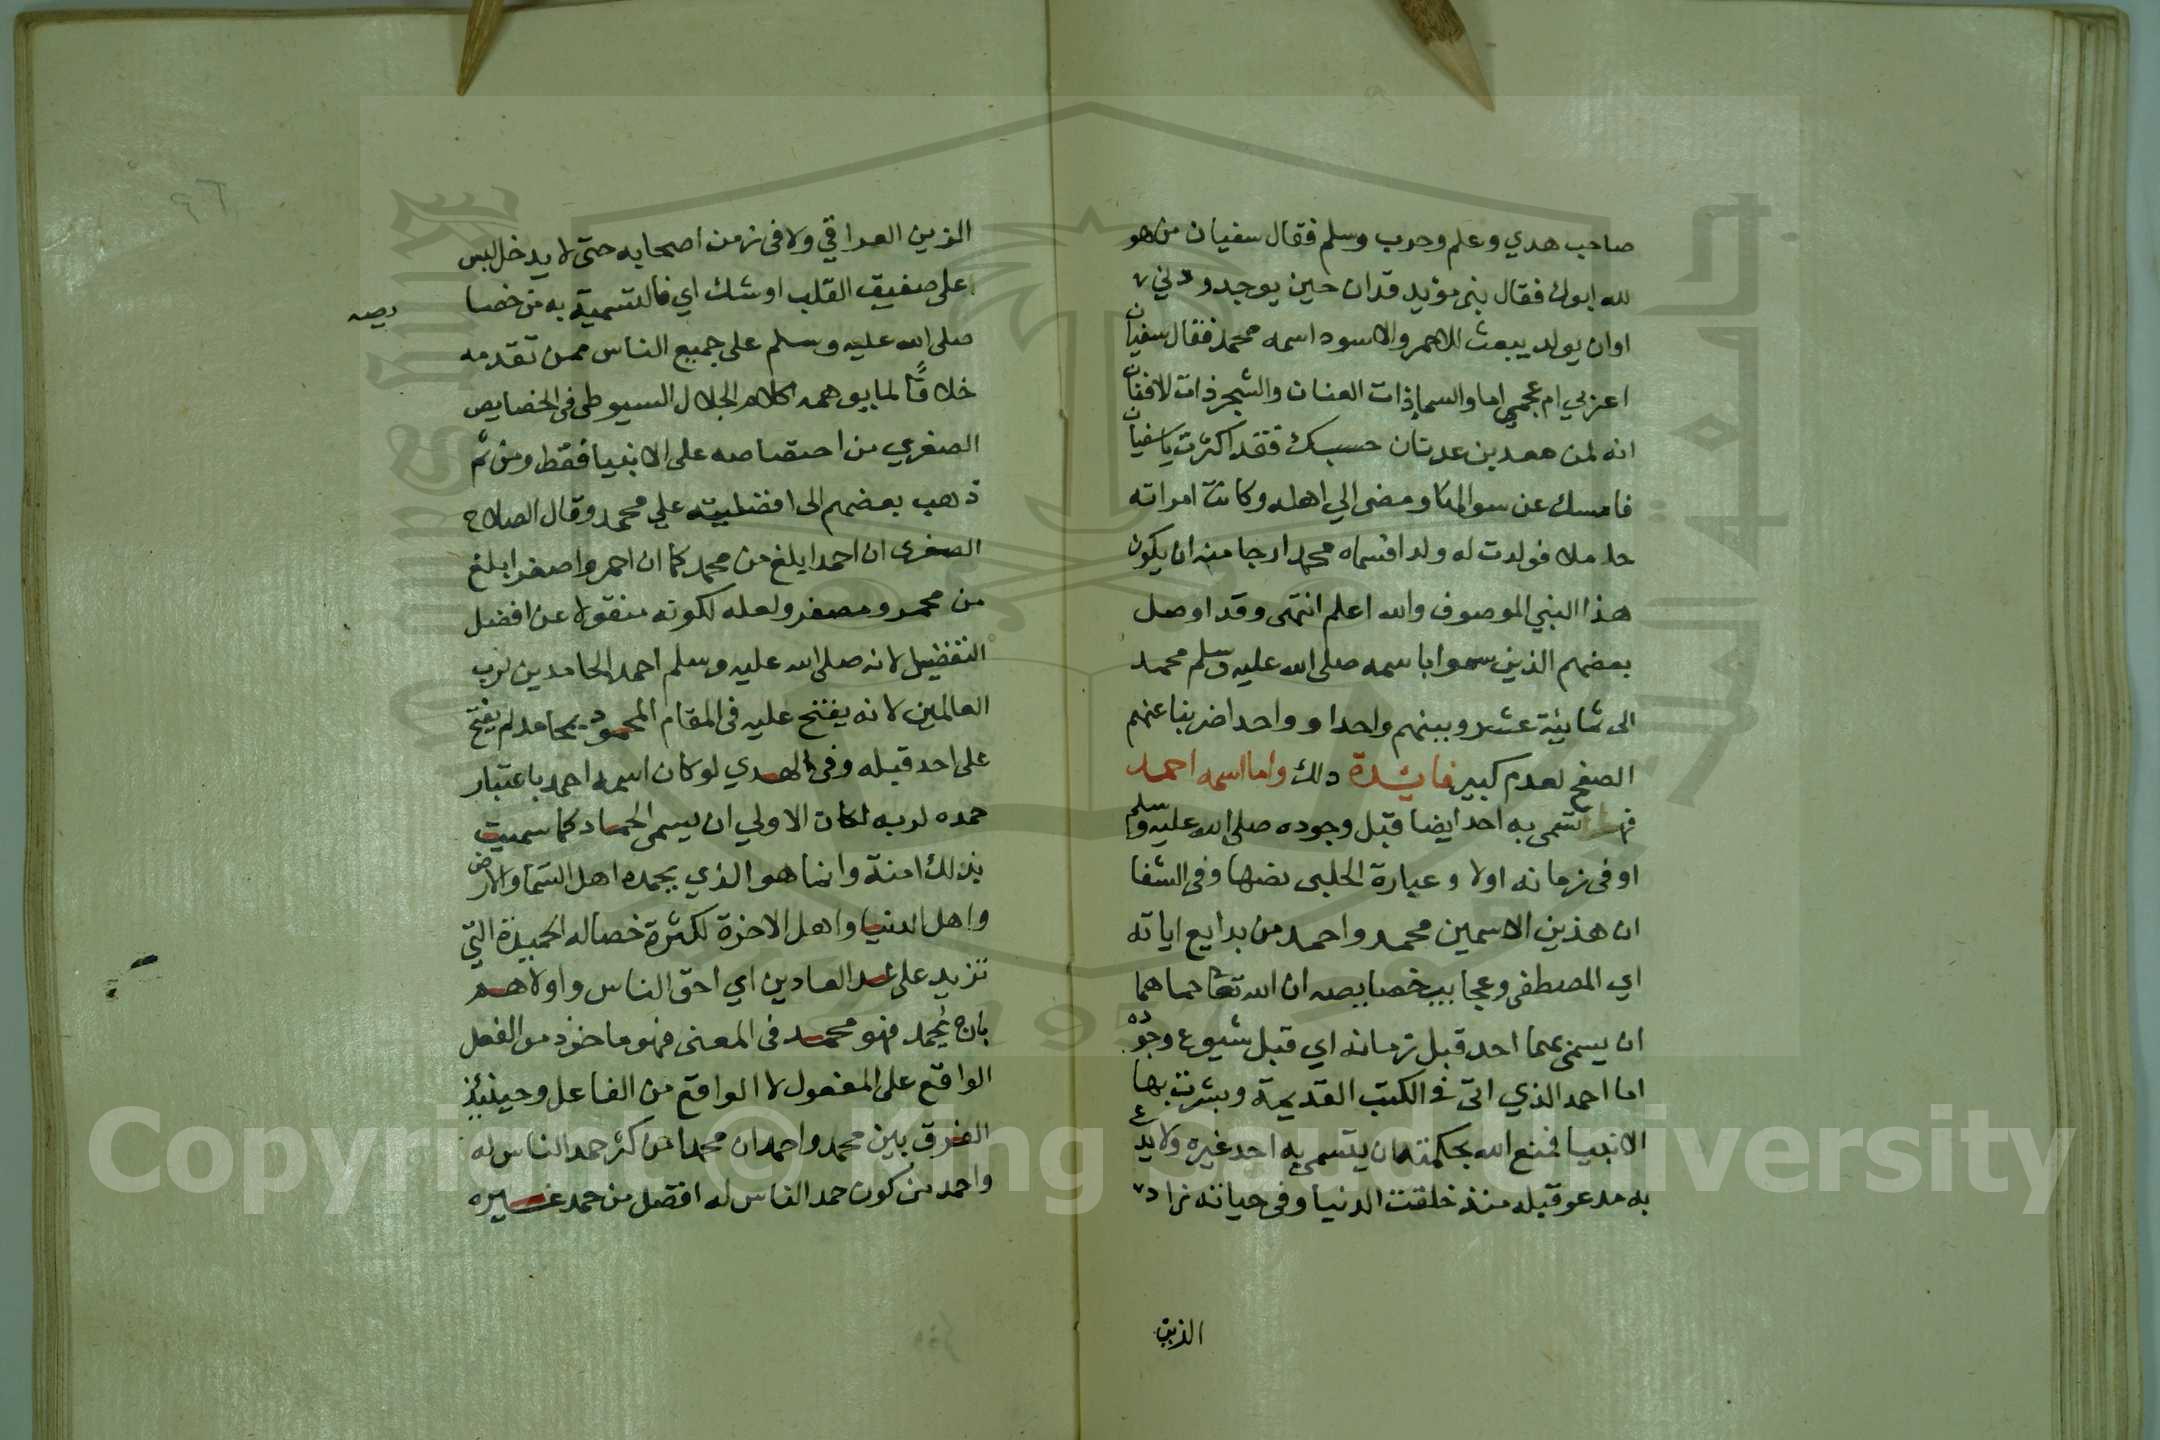 صاحب هدي وعلم وحرب وسلم فقال سفيان من هو
لله ابوك فقال بني مؤيد قد ان حين يوجد ودني
اوان يولد يبعث للاحمر والاسود اسمه محمد فقال سفيان
اعربي ام عجمي اما والسما ذات العنان والشجر ذات الافنان
انه لمن معد بن عدنان حسبك فقد اكثرت يا سفيان
فامسك عن سوالها ومضى الي اهله وكانت امراته
حاملا فولدت له ولدا فسماه محمدا رجا منه ان يكون
هذا النبي الموصوف والله اعلم انتهى وقد اوصل
بعضهم الذين سموا باسمه صلى الله عليه وسلم محمد
الى ثمانية عشر وبينهم واحدا وواحدا ضربنا عنهم
الصفح لعدم كبير فايدة ذلك واما اسمه احمد
تسمى به احد ايضا قبل وجوده صلى الله عليه وسلم
او في زمانه اولا وعبارة الحلبي نصها وفي الشفا
ان هذين الاسمين محمد واحمد من بدايع اياته
اي المصطفى وعجايب خصايصه ان الله تعا حماهما
ان يسمى بهما احد قبل زمانه اي قبل شيوع وجوده
اما احمد الذي اتى في الكتب القديمة وبشرت بها
الانبيا فمنع الله بحكمته ان يتسمى به احد غيره ولا يدع
به مدعو قبله منذ خلقت الدنيا وفي حياته زاد
الزين
الزين العراقي ولا في زمن اصحابه حتى لا يدخل لبس
على ضعيف القلب او شك اي فالتسمية به من خصا
يصه
صلى الله عليه وسلم على جميع الناس ممن تقدمه
خلافا لما يوهمه كلام الجلال السيوطي في الخصايص
الصغري من اختصاصه على الانبيا فقط ومن ثم
ذهب بعضهم الى افضليته على محمد وقال الصلاح
الصفدي ان احمد ابلغ من محمد كما ان احمر واصفر ابلغ
من محمر ومصفر ولعله لكونه منقولا عن افضل
التفضيل لانه صلى الله عليه وسلم احمد الحامدين لرب
العالمين لانه يفتح عليه في المقام المحمود بمحامد لم يفتح
على احد قبله وفى الهدي لو كان اسمه احمد باعتبار
حمده لربه لكان الاولي ان يسمى الحماد كما سميت
بذلك امنة وانما هو الذي يحمده اهل السما والارض
واهل الدنيا واهل الاخرة لكثرة خصاله الحميدة التي
تزيد على عد العادين اي احق الناس واولاهم
بان يحمد فهو محمد في المعنى فهو ماخوذ من الفعل
الواقع على المفعول لا الواقع من الفاعل وحينئذ
الفرق بين محمد واحمد ان محمدا من كثر حمد الناس له
واحمد من كون حمد الناس له افضل من حمد غيره
Copyright © King Saud University